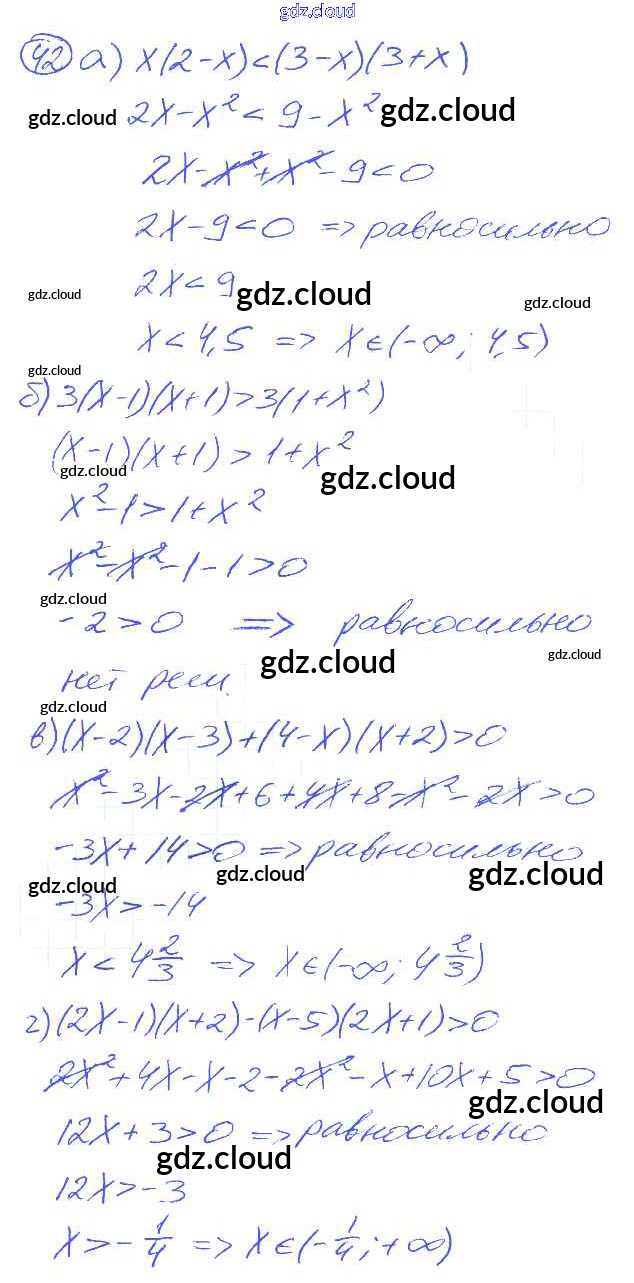 gdz.cloud
42 а) x(2-x)<(3-x)(3+x)
gdz.cloud 2x-x²<9-x² gdz.cloud
2x-x²+x²-9<0
2x-9<0 => равносильно
gdz.cloud 2x<9 gdz.cloud gdz.cloud
x<4,5 => x∈(-∞; 4,5)
gdz.cloud
б) 3(x-1)(x+1)>3(1+x²)
(x-1)(x+1)>1+x²
gdz.cloud gdz.cloud
x²-1>1+x²
x²-x²-1-1>0
gdz.cloud
-2>0 => равносильно
gdz.cloud gdz.cloud
нет реш.
gdz.cloud
в) (x-2)(x-3)+(4-x)(x+2)>0
x²-3x-2x+6+4x+8-x²-2x>0
-3x+14>0 => равносильно
gdz.cloud gdz.cloud gdz.cloud
-3x>-14
x<4 2/3 => x∈(-∞; 4 2/3)
г) (2x-1)(x+2)-(x-5)(2x+1)>0
2x²+4x-x-2-2x²-x+10x+5>0
gdz.cloud
12x+3>0 => равносильно
gdz.cloud
12x>-3
x>-1/4 => x∈(-1/4; +∞)